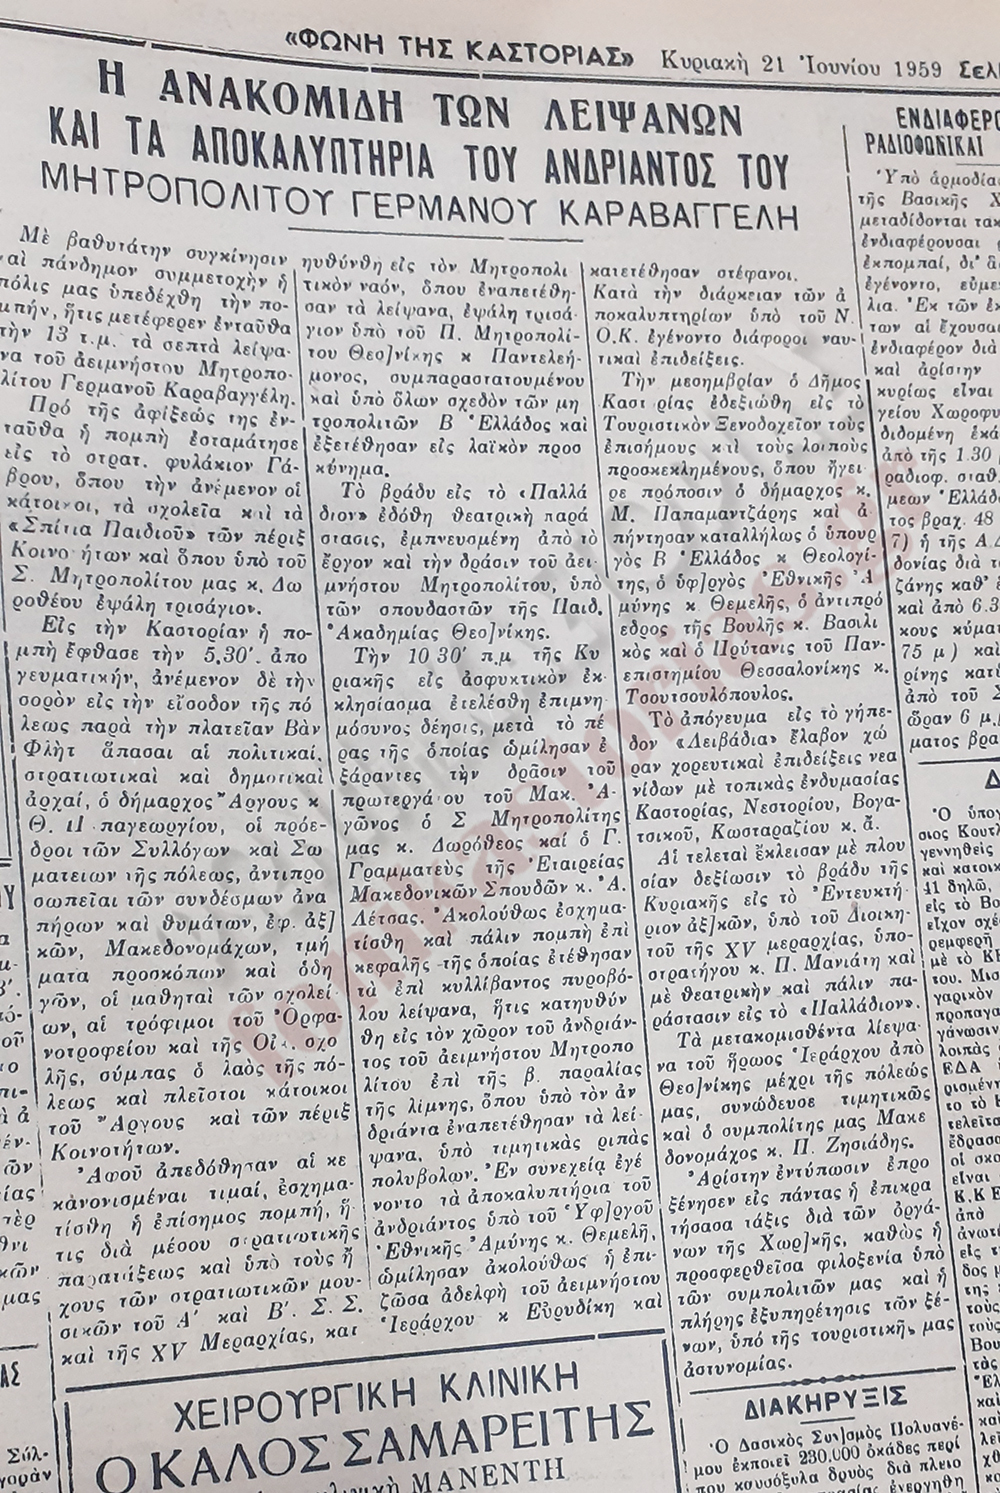 «ΦΩΝΗ ΤΗΣ ΚΑΣΤΟΡΙΑΣ» Κυριακὴ 21 Ἰουνίου 1959
Η ΑΝΑΚΟΜΙΔΗ ΤΩΝ ΛΕΙΨΑΝΩΝ
ΚΑΙ ΤΑ ΑΠΟΚΑΛΥΠΤΗΡΙΑ ΤΟΥ ΑΝΔΡΙΑΝΤΟΣ ΤΟΥ
ΜΗΤΡΟΠΟΛΙΤΟΥ ΓΕΡΜΑΝΟΥ ΚΑΡΑΒΑΓΓΕΛΗ
Μὲ βαθυτάτην συγκίνησιν
αὶ πάνδημον συμμετοχὴν ἡ
πόλις μας ὑπεδέχθη τὴν πο-
μπήν, ἥτις μετέφερεν ἐνταῦθα
τὴν 13 τ.μ. τὰ σεπτὰ λείψα-
να τοῦ ἀειμνήστου Μητροπο-
λίτου Γερμανοῦ Καραβαγγέλη.
Πρό τῆς ἀφίξεώς της ἐν-
ταῦθα ἡ πομπὴ ἐσταμάτησε
εἰς τὸ στρατ. φυλάκιον Γά-
βρου, ὅπου τὴν ἀνέμενον οἱ
κάτοικοι, τὰ σχολεῖα καὶ τὰ
«Σπίτια Παιδιοῦ» τῶν πέριξ
Κοινο ήτων καὶ ὅπου ὑπὸ τοῦ
Σ. Μητροπολίτου μας κ. Δω
ροθέου ἐψάλη τρισάγιον.
Εἰς τὴν Καστορίαν ἡ πο-
μπὴ ἔφθασε τὴν 5,30΄. ἀπο
γευματικήν, ἀνέμενον δὲ τὴν
σορὸν εἰς τὴν εἴσοδον τῆς πό
λεως παρὰ τὴν πλατεῖαν Βὰν
Φλὴτ ἅπασαι αἱ πολιτικαί,
στρατιωτικαὶ καὶ δημοτικαὶ
ἀρχαί, ὁ δήμαρχος Ἄργους κ
Θ. Π παγεωργίου, οἱ πρόε-
δροι τῶν Συλλόγων καὶ Σω
ματειων τῆς πόλεως, ἀντιπρο
σωπεῖαι τῶν συνδέσμων ἀνα
πήρων καὶ θυμάτων, ἐφ. ἀξ]
κῶν, Μακεδονομάχων, τμή
ματα προσκόπων καὶ ὁδη
γῶν, οἱ μαθηταὶ τῶν σχολεί-
ων, αἱ τρόφιμοι τοῦ Ὀρφα-
νοτροφείου καὶ τῆς Οἰκ. σχο
λῆς, σύμπας ὁ λαὸς τῆς πό-
λεως καὶ πλεῖστοι κάτοικοι
τοῦ Ἄργους καὶ τῶν πέριξ
Κοινοτήτων.
Ἀφοῦ ἀπεδόθησαν αἱ κε
κανονισμέναι τιμαί, ἐσχημα-
τίσθη ἡ ἐπίσημος πομπή, ἥ-
τις διὰ μέσου στρατιωτικῆς
παρατάξεως καὶ ὑπὸ τοὺς ἤ
χους τῶν στρατιωτικῶν μου-
σικῶν τοῦ Α΄ καὶ Β΄. Σ. Σ.
καὶ τῆς XV Μεραρχίας, κατ
ηυθύνθη εἰς τὸν Μητροπολι
τικὸν ναόν, ὅπου ἐναπετέθη-
σαν τὰ λείψανα, ἐψάλη τρισά-
γιον ὑπὸ τοῦ Π. Μητροπολί-
του Θεο]νίκης κ Παντελεή-
μονος, συμπαραστατουμένου
καὶ ὑπὸ ὅλων σχεδὸν τῶν μη
τροπολιτῶν Β Ἑλλάδος καὶ
ἐξετέθησαν εἰς λαϊκὸν προσ
κύνημα.
Τὸ βράδυ εἰς τὸ «Παλλά
διον» ἐδόθη θεατρικὴ παρά
στασις, ἐμπνευσμένη ἀπὸ τὸ
ἔργον καὶ τὴν δρᾶσιν τοῦ ἀει-
μνήστου Μητροπολίτου, ὑπὸ
τῶν σπουδαστῶν τῆς Παιδ.
Ἀκαδημίας Θεο]νίκης.
Τὴν 10 30΄ π.μ τῆς Κυ
ριακῆς εἰς ἀσφυκτικὸν ἐκ-
κλησίασμα ἐτελέσθη ἐπιμνη-
μόσυνος δέησις, μετὰ τὸ πέ
ρας τῆς ὁποίας ὡμίλησαν ἐ
ξάραντες τὴν δρᾶσιν τοῦ
πρωτεργά ου τοῦ Μακ. Ἀ-
γῶνος ὁ Σ Μητροπολίτης
μας κ. Δωρόθεος καὶ ὁ Γ.
Γραμματεὺς τῆς Ἑταιρείας
Μακεδονικῶν Σπουδῶν κ. Ἀ.
Λέτσας. Ἀκολούθως ἐσχημα-
τίσθη καὶ πάλιν πομπὴ ἐπὶ
κεφαλῆς τῆς ὁποίας ἐτέθησαν
τὰ ἐπὶ κυλλίβαντος πυροβό-
λου λείψανα, ἥτις κατηυθύν
θη εἰς τὸν χῶρον τοῦ ἀνδριάν-
τος τοῦ ἀειμνήστου Μητροπο
λίτου ἐπὶ τῆς β. παραλίας
τῆς λίμνης, ὅπου ὑπὸ τὸν ἀν
δριάντα ἐναπετέθησαν τὰ λεί-
ψανα, ὑπὸ τιμητικὰς ριπὰς
πολυβολων. Ἐν συνεχείᾳ ἐγέ
νοντο τὰ ἀποκαλυπτήρια τοῦ
ἀνδριάντος ὑπὸ τοῦ Ὑφ]ργοῦ
Ἐθνικῆς Ἀμύνης κ. Θεμελῆ,
ὡμίλησαν ἀκολούθως ἡ ἐπι-
ζῶσα ἀδελφὴ τοῦ ἀειμνήστου
Ἱεράρχου κ Εὐρυδίκη καὶ
κατετέθησαν στέφανοι.
Κατὰ τὴν διάρκειαν τῶν ἀ
ποκαλυπτηρίων ὑπὸ τοῦ Ν.
Ο.Κ. ἐγένοντο διάφοροι ναυ-
τικαὶ ἐπιδείξεις.
Τὴν μεσημβρίαν ὁ Δῆμος
Καστ ρίας ἐδεξιώθη εἰς τὸ
Τουριστικὸν Ξενοδοχεῖον τοὺς
ἐπισήμους καὶ τοὺς λοιποὺς
προσκεκλημένους, ὅπου ἤγει-
ρε πρόποσιν ὁ δήμαρχος κ.
Μ. Παπαμαντζάρης καὶ ἀ-
πήντησαν καταλλήλως ὁ ὑπουρ
γὸς Β Ἑλλάδος κ Θεολογί-
της, ὁ ὑφ]ργὸς Ἐθνικῆς Ἀ
μύνης κ. Θεμελῆς, ὁ ἀντιπρό
εδρος τῆς Βουλῆς κ. Βασιλι
κὸς καὶ ὁ Πρύτανις τοῦ Παν-
επιστημίου Θεσσαλονίκης κ.
Τσουτσουλόπουλος.
Τὸ ἀπόγευμα εἰς τὸ γήπε-
δον «Λειβάδια» ἔλαβον χώ
ραν χορευτικαὶ ἐπιδείξεις νεα
νίδων μὲ τοπικὰς ἐνδυμασίας
Καστορίας, Νεστορίου, Βογα-
τσικοῦ, Κωσταραζίου κ. ἄ.
Αἱ τελεταὶ ἔκλεισαν μὲ πλου
σίαν δεξίωσιν τὸ βράδυ τῆς
Κυριακῆς εἰς τὸ Ἐντευκτή-
ριον ἀξ]κῶν, ὑπὸ τοῦ Διοικη-
τοῦ τῆς XV μεραρχίας, ὑπο-
στρατήγου κ. Π. Μανιάτη καὶ
μὲ θεατρικὴν καὶ πάλιν πα-
ράστασιν εἰς τὸ «Παλλάδιον».
Τὰ μετακομισθέντα λίεψα-
να τοῦ ἥρωος Ἱεράρχου ἀπὸ
Θεο]νίκης μέχρι τῆς πόλεώς
μας, συνώδευσε τιμητικῶς
καὶ ὁ συμπολίτης μας Μακε
δονομάχος κ. Π. Ζησιάδης.
Ἀρίστην ἐντύπωσιν ἐπρο
ξένησεν εἰς πάντας ἡ ἐπικρα
τήσασα τάξις διὰ τῶν ὀργά-
νων τῆς Χωρ]κῆς, καθὼς ἡ
προσφερθεῖσα φιλοξενία ὑπὸ
τῶν συμπολιτῶν μας καὶ ἡ
πλήρης ἐξυπηρέτησις τῶν ξέ-
νων, ὑπό τῆς τουριστικῆς μας
ἀστυνομίας.
ΧΕΙΡΟΥΡΓΙΚΗ ΚΛΙΝΙΚΗ
Ο ΚΑΛΟΣ ΣΑΜΑΡΕΙΤΗΣ
ΜΑΝΕΝΤΗ
ΔΙΑΚΗΡΥΞΙΣ
Ὁ Δασικὸς Συν]σμὸς Πολυανέ-
μου ἐκποιεῖ 230.000 ὀκάδες περί
που καυσόξυλα δρυὸς διὰ πλειο
ἐνεργηθῃ
ΕΝΔΙΑΦΕΡΟ
ΡΑΔΙΟΦΩΝΙΚΑΙ
Ὑπὸ ἁρμοδίας
τῆς Βασικῆς Χ
μεταδίδονται τακ
ἐνδιαφέρουσαι
ἐκπομπαί, δι᾽
ἐγένοντο, εὐμε
λια. Ἐκ τῶν ἐκ
των αἱ ἔχουσαι
ἐνδιαφέρον διὰ
καὶ ἀρίστην
κυρίως εἶναι
γείου Χωροφυ
διδομένη ἑκά
ἀπὸ τῆς 1.30
ραδιοφ. σταθ.
μεων Ἑλλάδ
τος βραχ. 48
7) ἡ τῆς Α.Δ
δονίας διὰ τ
ζάνης καθ᾽
καὶ ἀπὸ 6.3
κους κύμα
75 μ) καὶ
ρίνης κατ
ἀπὸ τοῦ Σ
ὥραν 6 μ.
ματος βρα
Ὁ ὑπο
σιος Κουτλ
γεννηθεὶς
καὶ κατοικ
41 δηλῶ,
εἰς τὸ Βο
εἶχον σχέ
ρεμφερῆ
μὲ τὸ ΚΚ
του. Μισ
γαρικὸν
προπαγα
γάνωσιν
λοιπὰς
ΕΔΑ
fonikastorias.gr